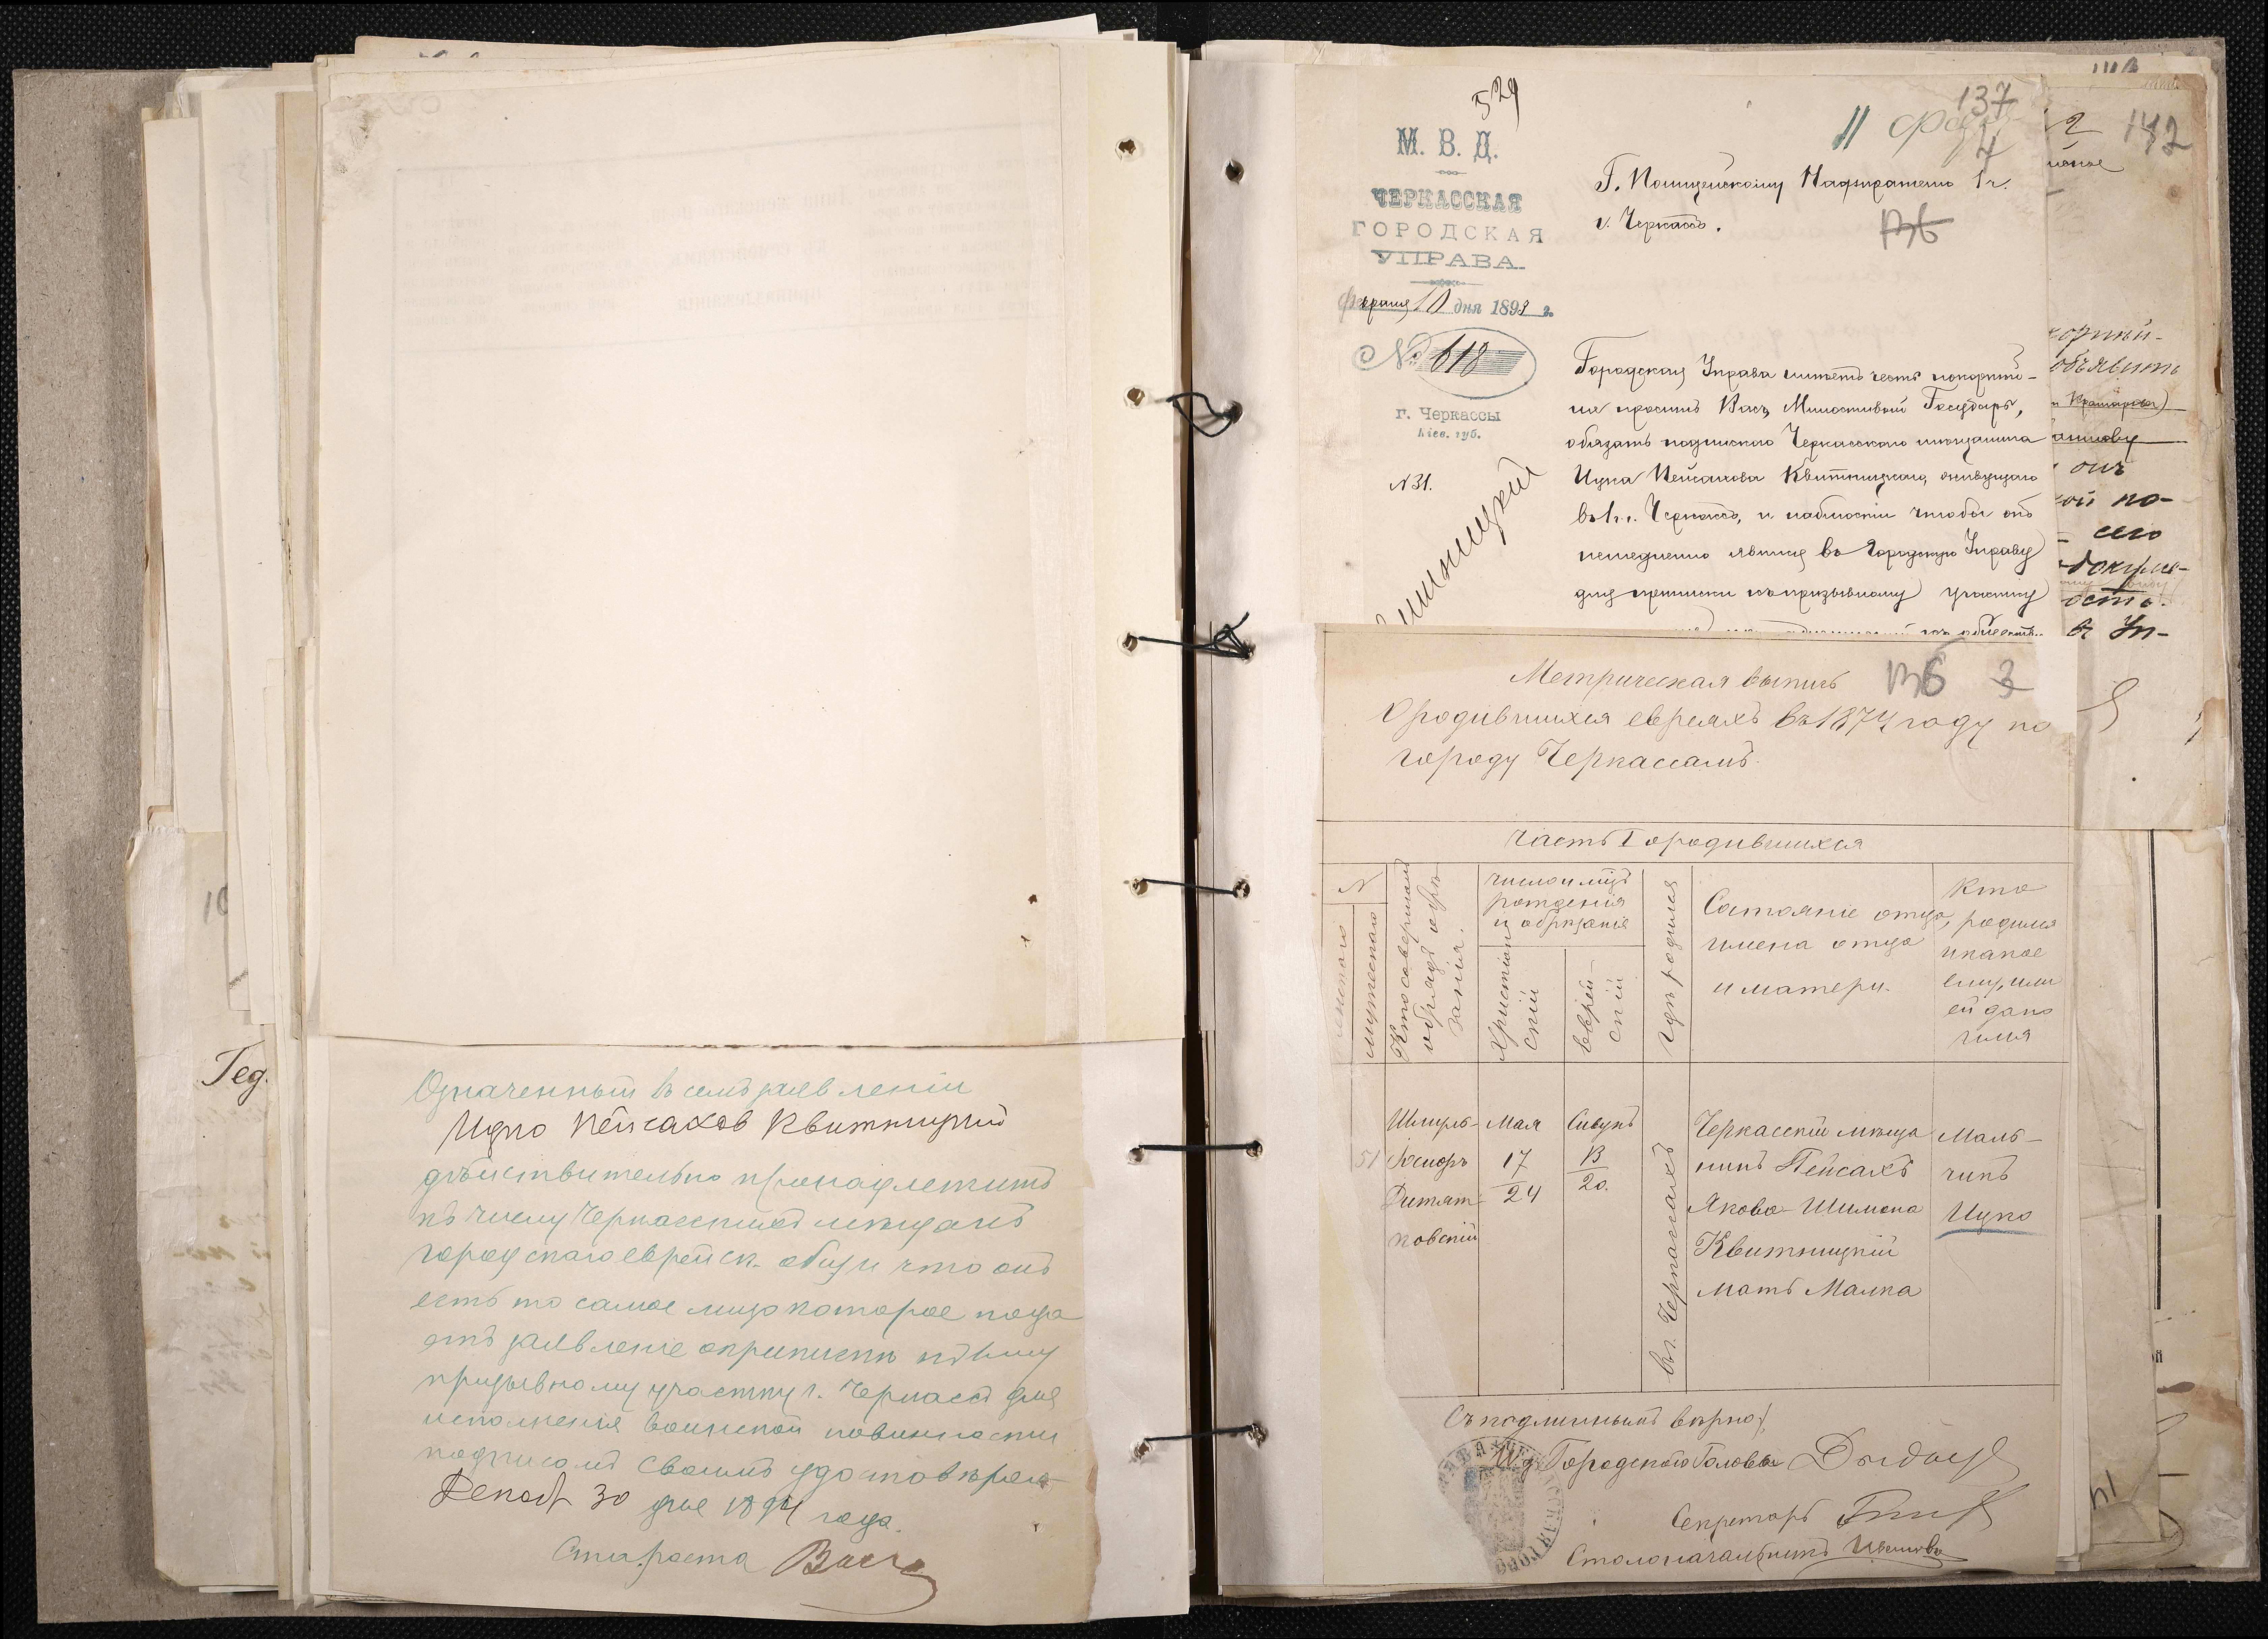 Означенный въ семъ заявленіи
Ицко Пейсахов Квитницкий
дѣйствительно принадлежитъ
къ числу Черкасскихъ мѣщанъ
городскаго еврейск. общ и что онъ
есть то самое лицо которое пода
етъ заявленіе о припискѣ къ
призывному участку г. Черкассъ для
исполненія воинской повинности
подписомъ своимъ удостовѣряю
Декаб 30 дня 1894 года.
Староста
Гед.
529
М. В. Д.
ЧЕРКАССКАЯ
ГОРОДСКАЯ
УПРАВА
Февраля 10 дня 1893 г.
№ 618
г. Черкассы
Кіев. губ.
N 31.
137
4
Г. Полицейскому Надзирателю 1 ч.
г. Черкассъ.
136
Городская Управа имѣетъ честь покорнѣй-
ше просить Васъ, Милостивый Государь,
обязать подпискою Черкасскаго мѣщанина
Ицка Пейсахова Квитницкаго, живущаго
въ 1 ч. г. Черкассъ, и наблюсти чтобы онъ
немедленно явился въ Городскую Управу
для приписки къ призывному участку
142
объявить
онъ
по-
сего
въ Уп-
Метрическая выпись
136 3
О родившихся евреяхъ въ 1874 году по
городу Черкассамъ.
Часть I о родившихся
N
женскаго
мужескаго
Кто совершалъ
обрядъ обрѣ
занія.
Число и мѣц.
рожденія
и обрѣзанія
Христіан
скій
Еврей-
скій
Гдѣ родился
Состояніе отца,
имена отца
и матери.
Кто
родился
и какое
ему, или
ей дано
имя
51
Шмуль-
Іосиоръ
Ритят-
ковскій
Мая
17
24
Сивунъ
13
20.
въ г. Черкассахъ
Черкасскій мѣща
нинъ Пейсахъ
Якова-Шимона
Квитницкій
мать Малка
Маль-
чикъ
Ицко
Съ подлиннымъ вѣрно:
И.д. Городскаго Головы
Секретарь
Столоначальникъ Ивановъ